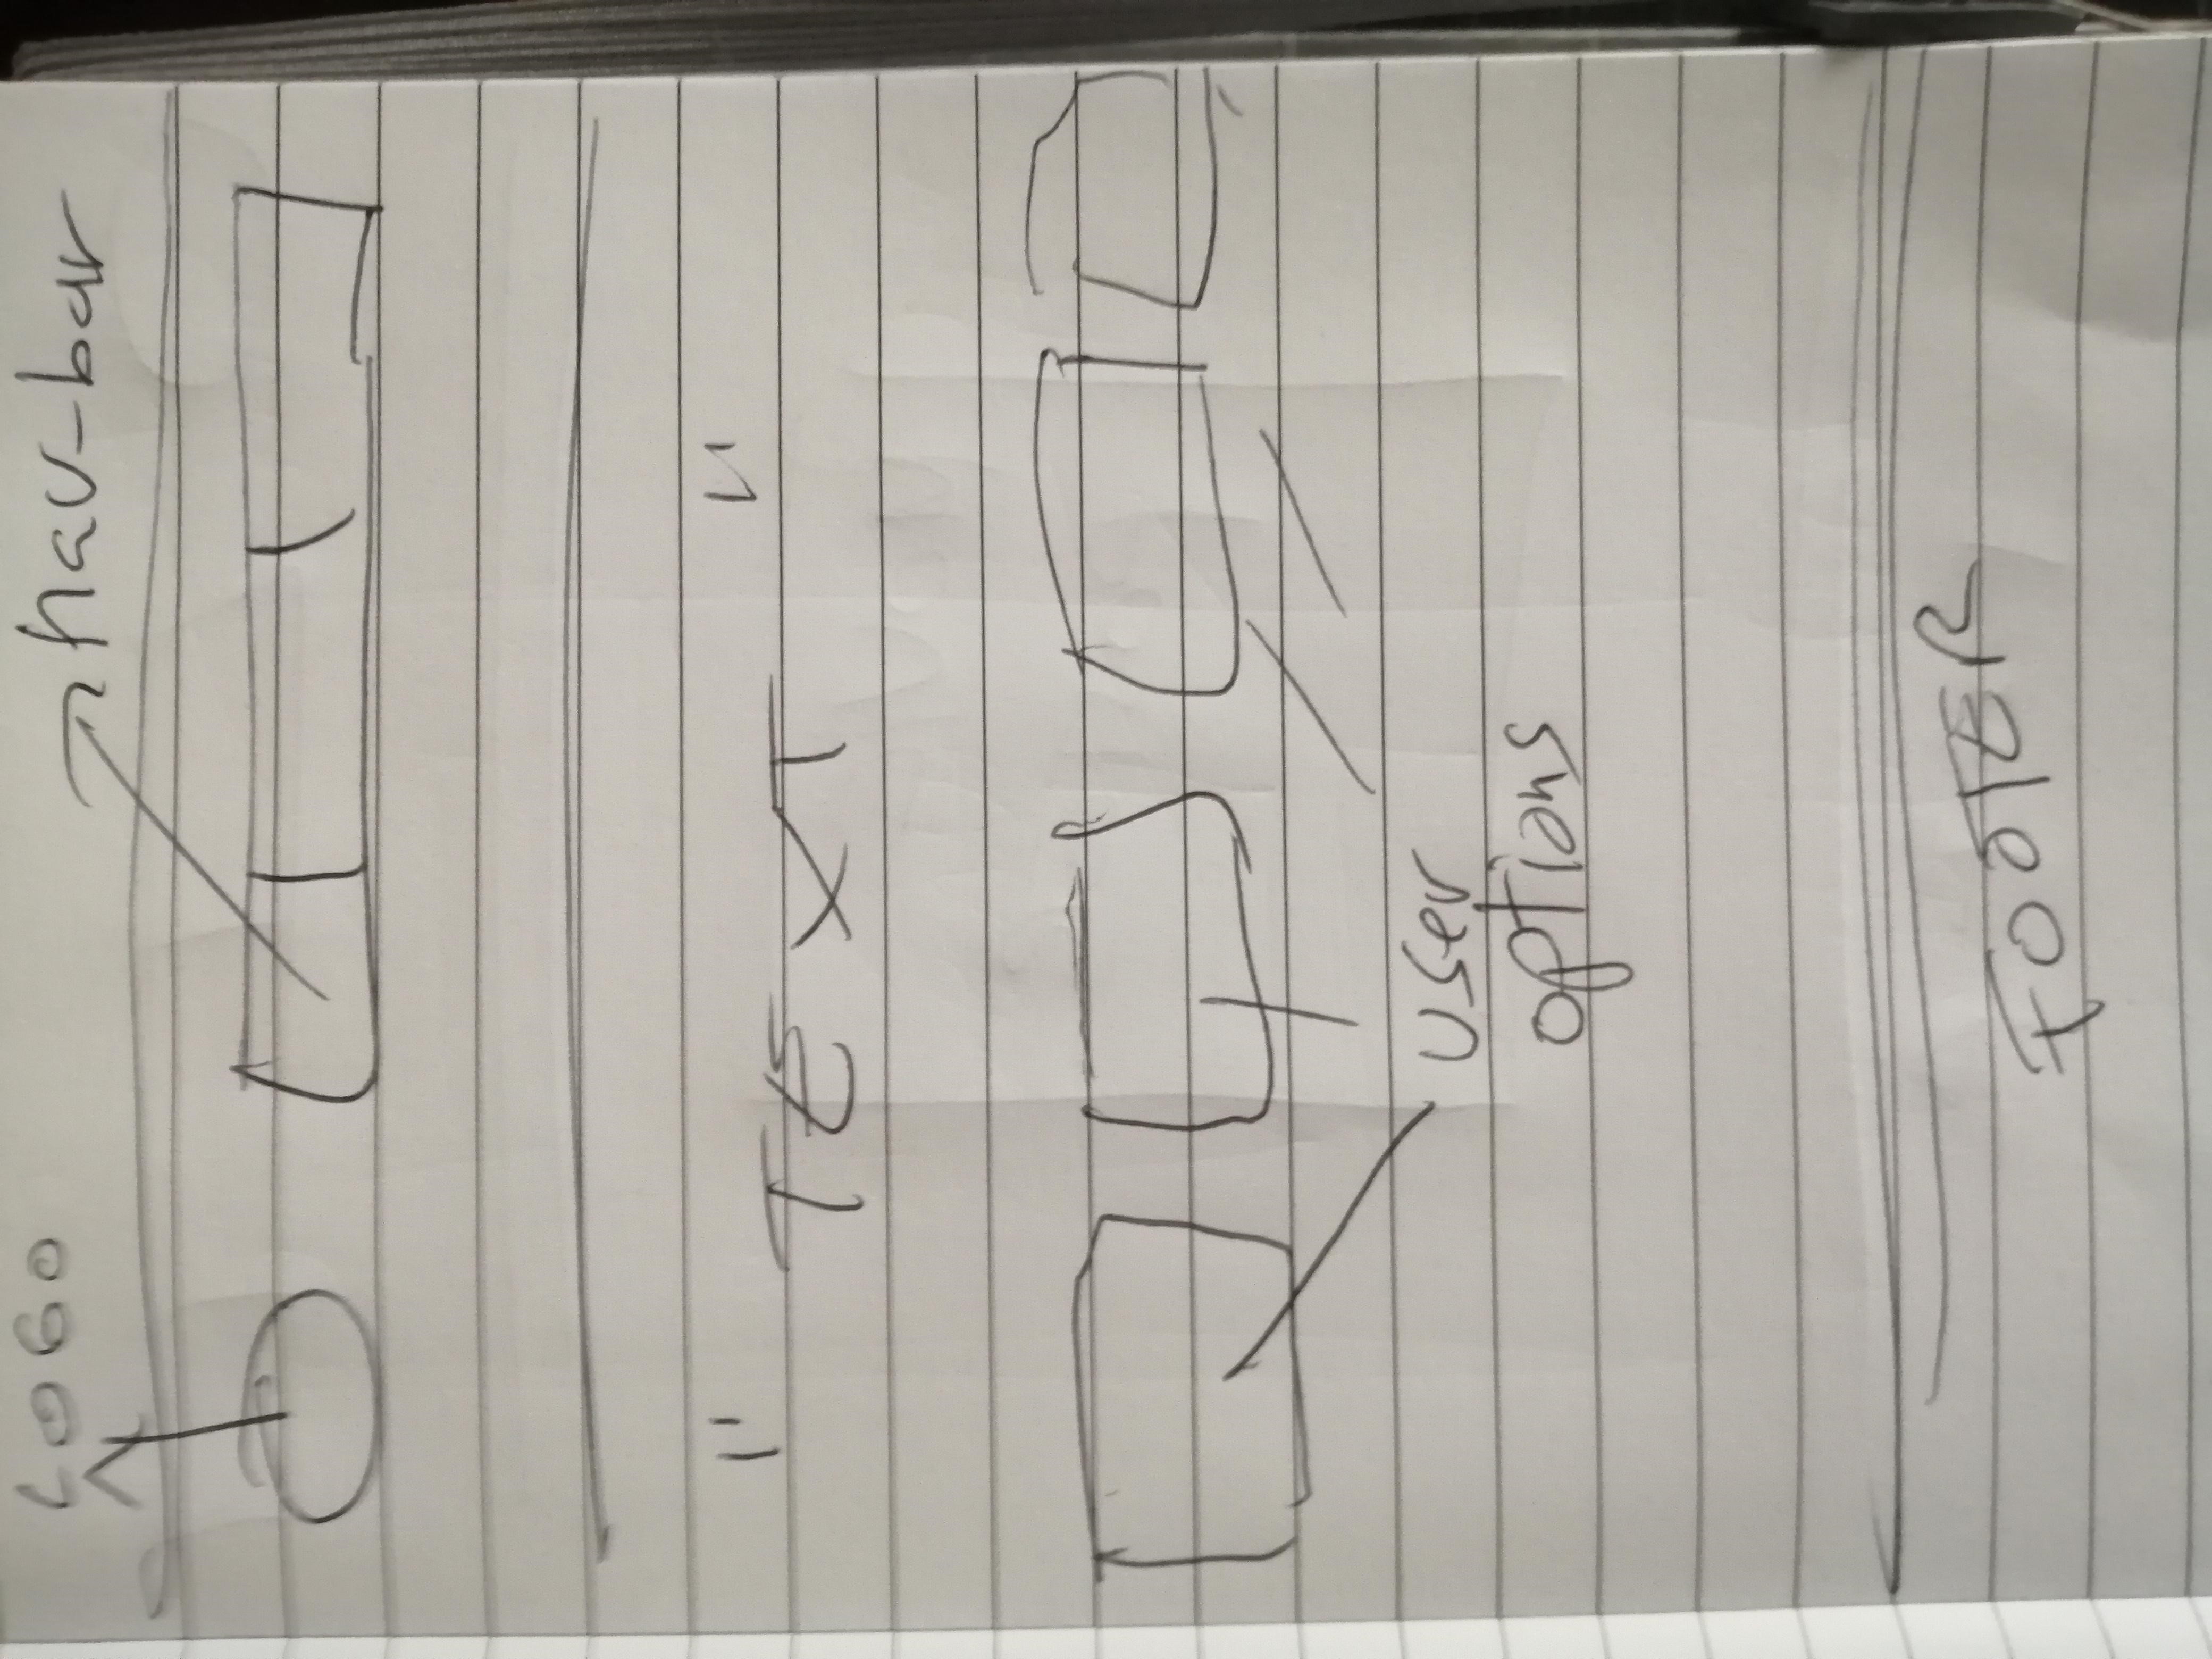 LOGO
nav-bar
" TEXT "
user
options
FOOTER